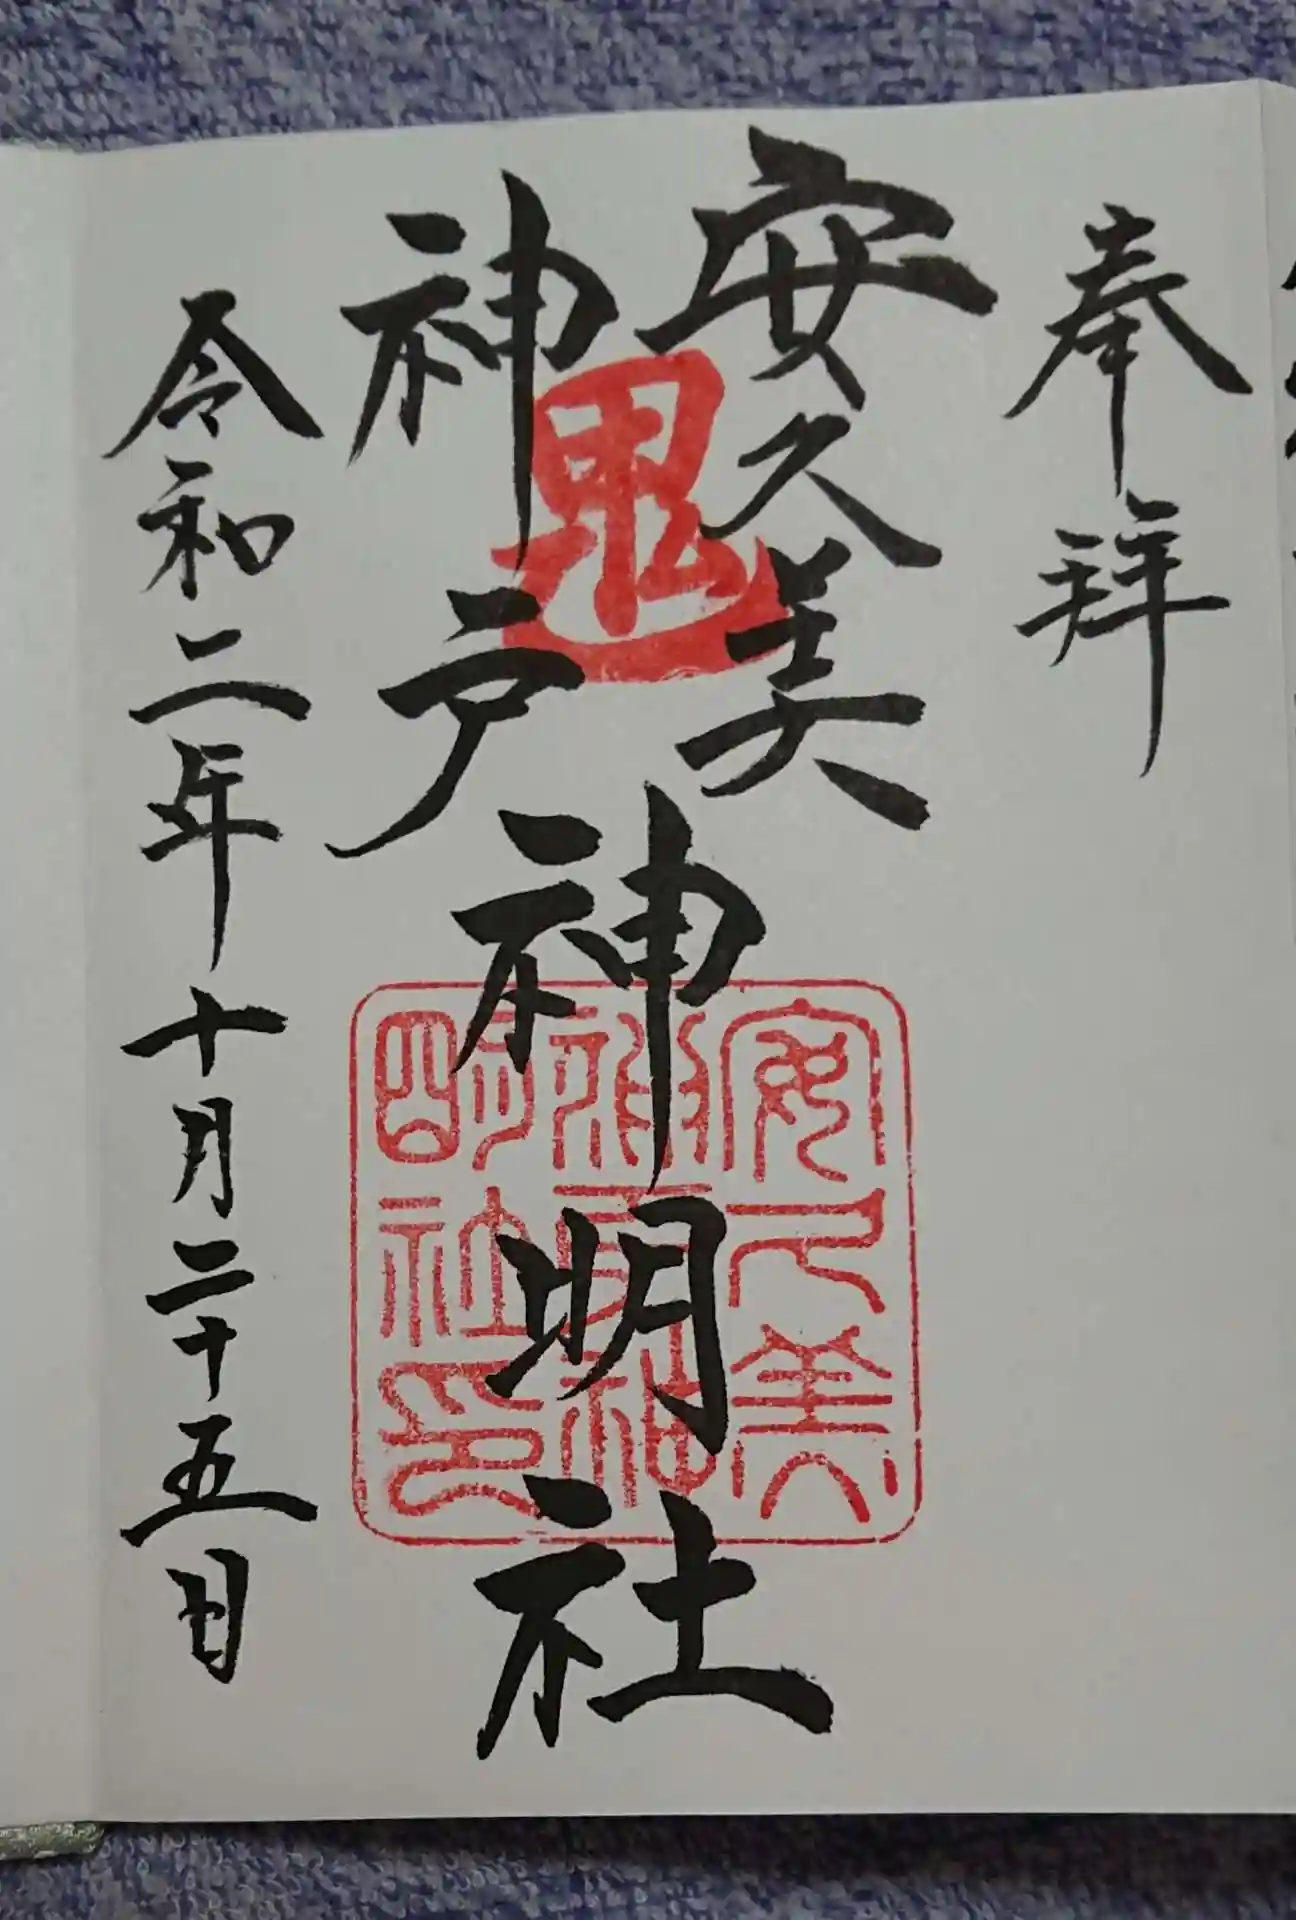 奉拝
安久美
神戸
神明社
鬼
安久美
神戸神
明社印
令和二年十月二十五日